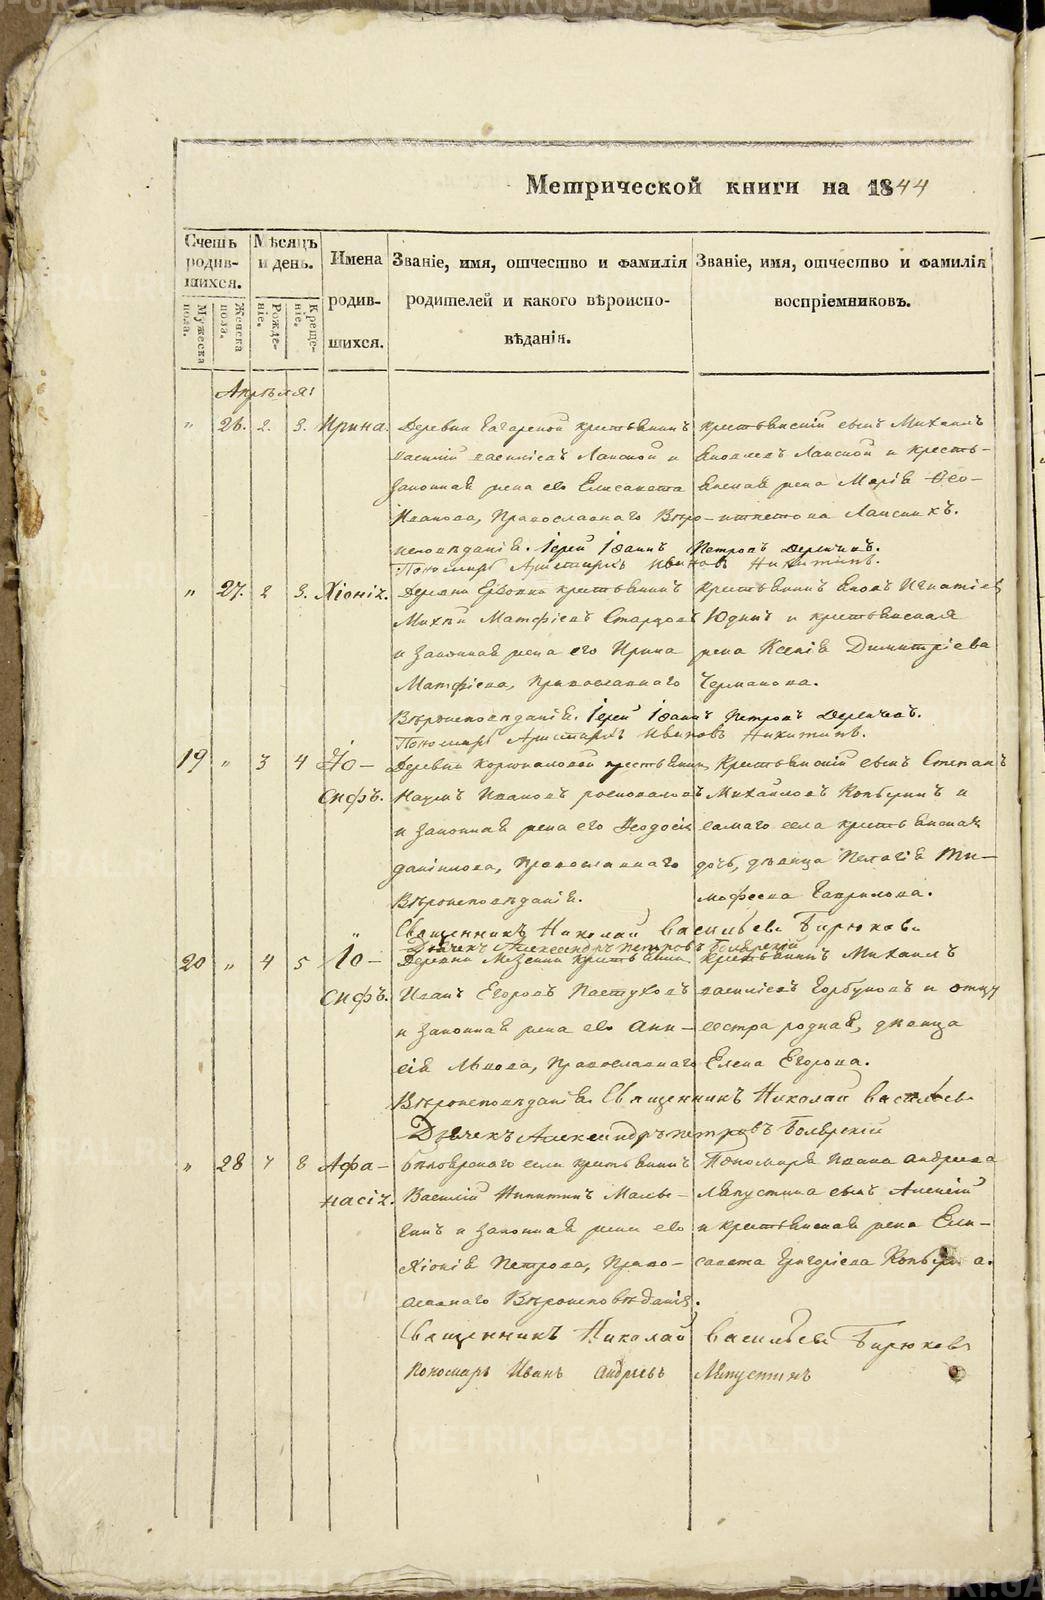 Метрической книги на 1844
Счетъ родив-шихся.
Мужеска пола.
Женска пола.
Мѣсяцъ и день.
Рожде-ніе.
Креще-ніе.
Имена родив-шихся.
Званіе, имя, отчество и фамилія родителей и какого вѣроиспо-вѣданія.
Званіе, имя, отчество и фамилія воспріемниковъ.
Апрѣля:
" 26. 2. 3. Ирина.
Деревни крестьянинъ
Василій Василіевъ Ланской и
законная жена его Елисавета
Иванова, Православнаго Вѣро-
исповѣданія. Іерей Іоаннъ Петровъ
Пономарь Аристархъ Ивановъ Никитинъ.
крестьянскій сынъ Михаилъ
Яковлевъ Ланской и кресть-
янская жена Марія Ѳео-
Ланскихъ.
" 27. 2 3. Хіонія.
Деревни крестьянинъ
Матфіевъ Старцовъ
и законная жена его Ирина
Матфіева, Православнаго
Вѣроисповѣданія. Іерей Іоаннъ Петровъ
Пономарь Аристархъ Ивановъ Никитинъ.
Крестьянинъ Яковъ Игнатіевъ
Юдинъ и крестьянская
жена Ксенія Димитріева
Черманова.
19 " 3 4 Іо-
сифъ.
Деревни крестьянинъ
Наумъ Ивановъ
и законная жена его Ѳеодосія
Даніилова, Православнаго
Вѣроисповѣданія.
Священникъ Николай Васильевъ Бирюковъ
Дьячекъ Александръ Петровъ Боярскій
Крестьянскій сынъ Степанъ
Михайловъ Копыринъ и
самаго села крестьянская
дочь, дѣвица Пелагія Ти-
мофеева Гаврилова.
20 " 4 5 Іо-
сифъ.
Деревни Мезенки крестьянинъ
Иванъ Егоровъ Пастуховъ
и законная жена его Ани-
сія Львова, Православнаго
Вѣроисповѣданія. Священникъ Николай Васильевъ
Дьячекъ Александръ Петровъ Боярскій
крестьянинъ Михаилъ
Василіевъ Горбуновъ и отцу
сестра родная, дѣвица
Елена Егорова.
" 28 7 8 Афа-
насія.
Бѣлоярскаго села крестьянинъ
Василій Никитинъ Малы-
гинъ и законная жена его
Хіонія Петрова, Право-
славнаго Вѣроисповѣданія.
Пономаря Ивана Андреева
Ляпустина сынъ Алексій
и крестьянская жена Ели-
савета Григоріева Копырина.
Священникъ Николай Васильевъ Бирюковъ
Пономарь Иванъ Андреевъ Ляпустинъ
METRIKI.GASO-URAL.RU